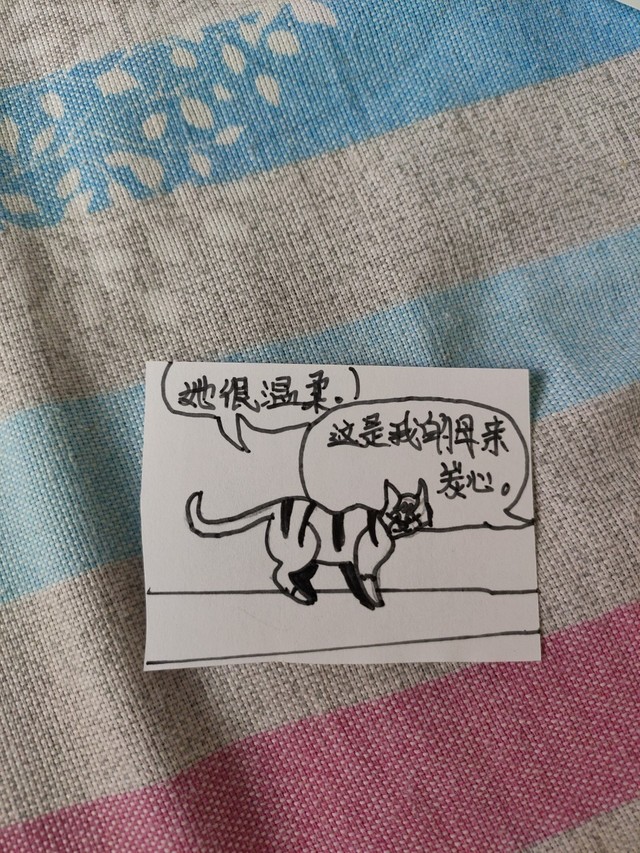 她很温柔.
这是我的母亲
炭心。